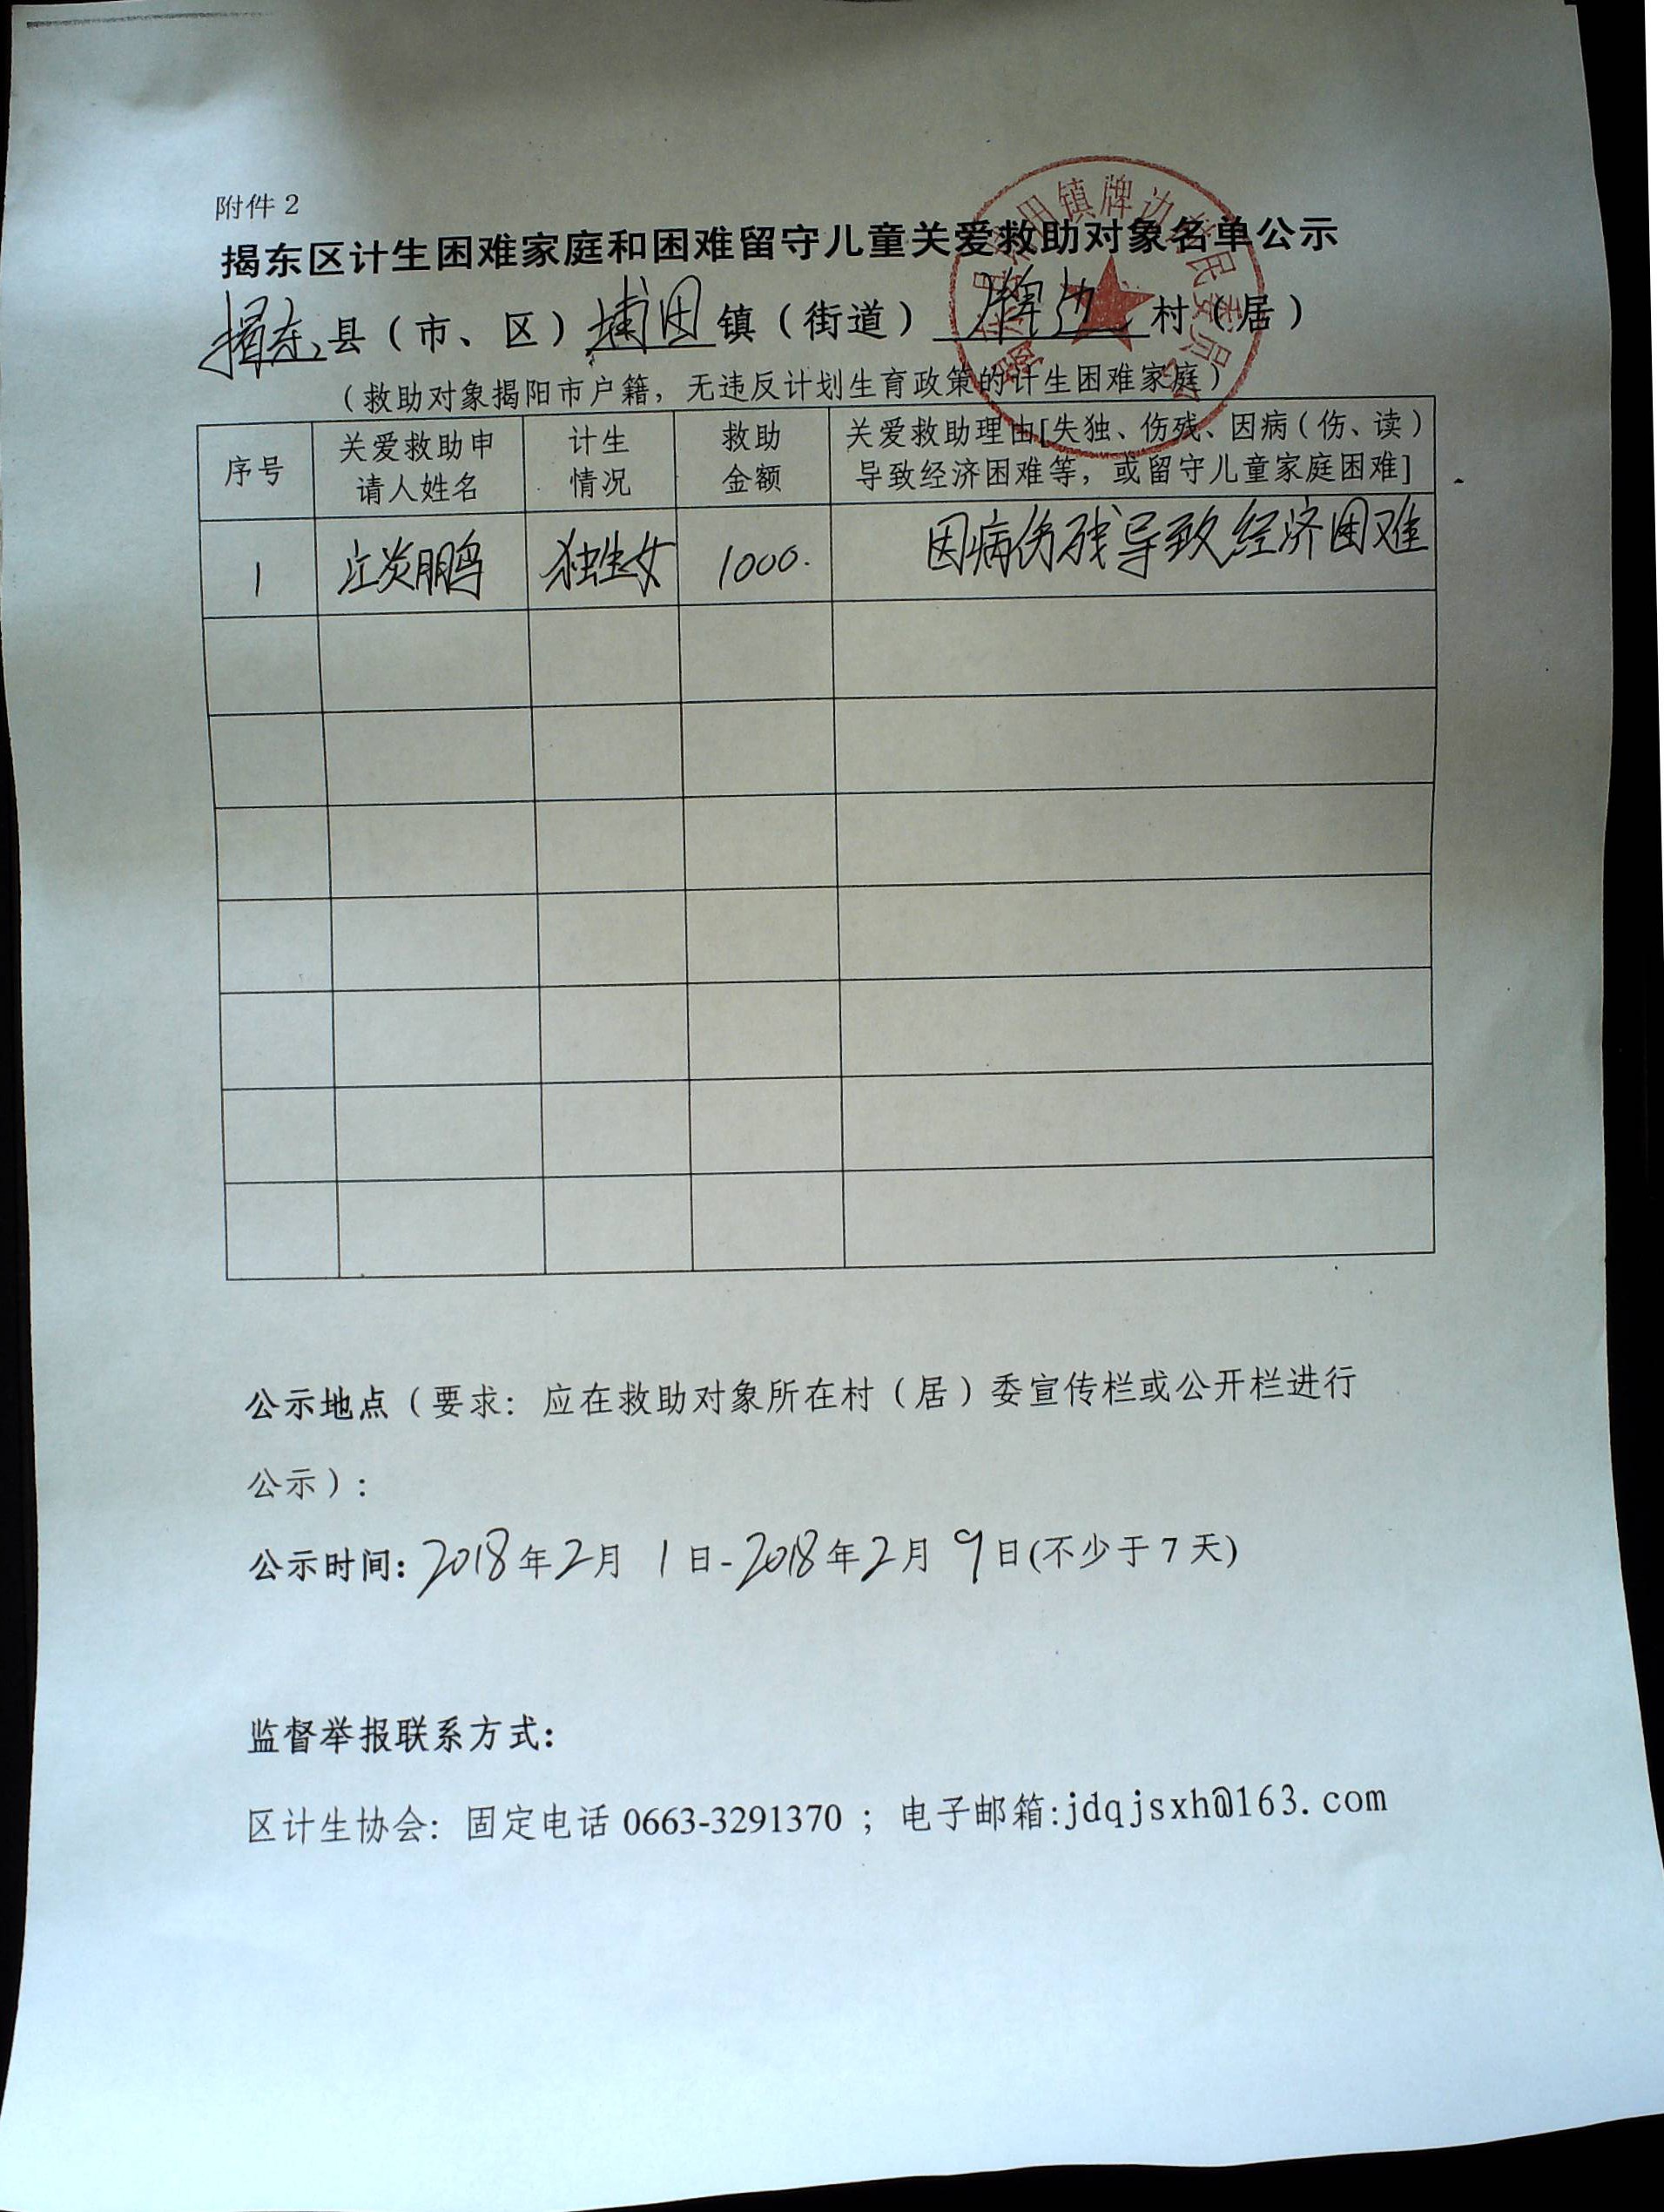 附件2
揭东区计生困难家庭和困难留守儿童关爱救助对象名单公示
揭东县（市、区）埔田镇（街道）牌边村（居）
（救助对象揭阳市户籍，无违反计划生育政策的计生困难家庭）
序号 关爱救助申请人姓名 计生情况 救助金额 关爱救助理由[失独、伤残、因病（伤、读）导致经济困难等，或留守儿童家庭困难]
1 江炎鹏 独生女 1000. 因病伤残导致经济困难
公示地点（要求：应在救助对象所在村（居）委宣传栏或公开栏进行
公示）：
公示时间：2018年2月1日-2018年2月9日(不少于7天)
监督举报联系方式：
区计生协会：固定电话0663-3291370；电子邮箱:jdqjsxh@163.com